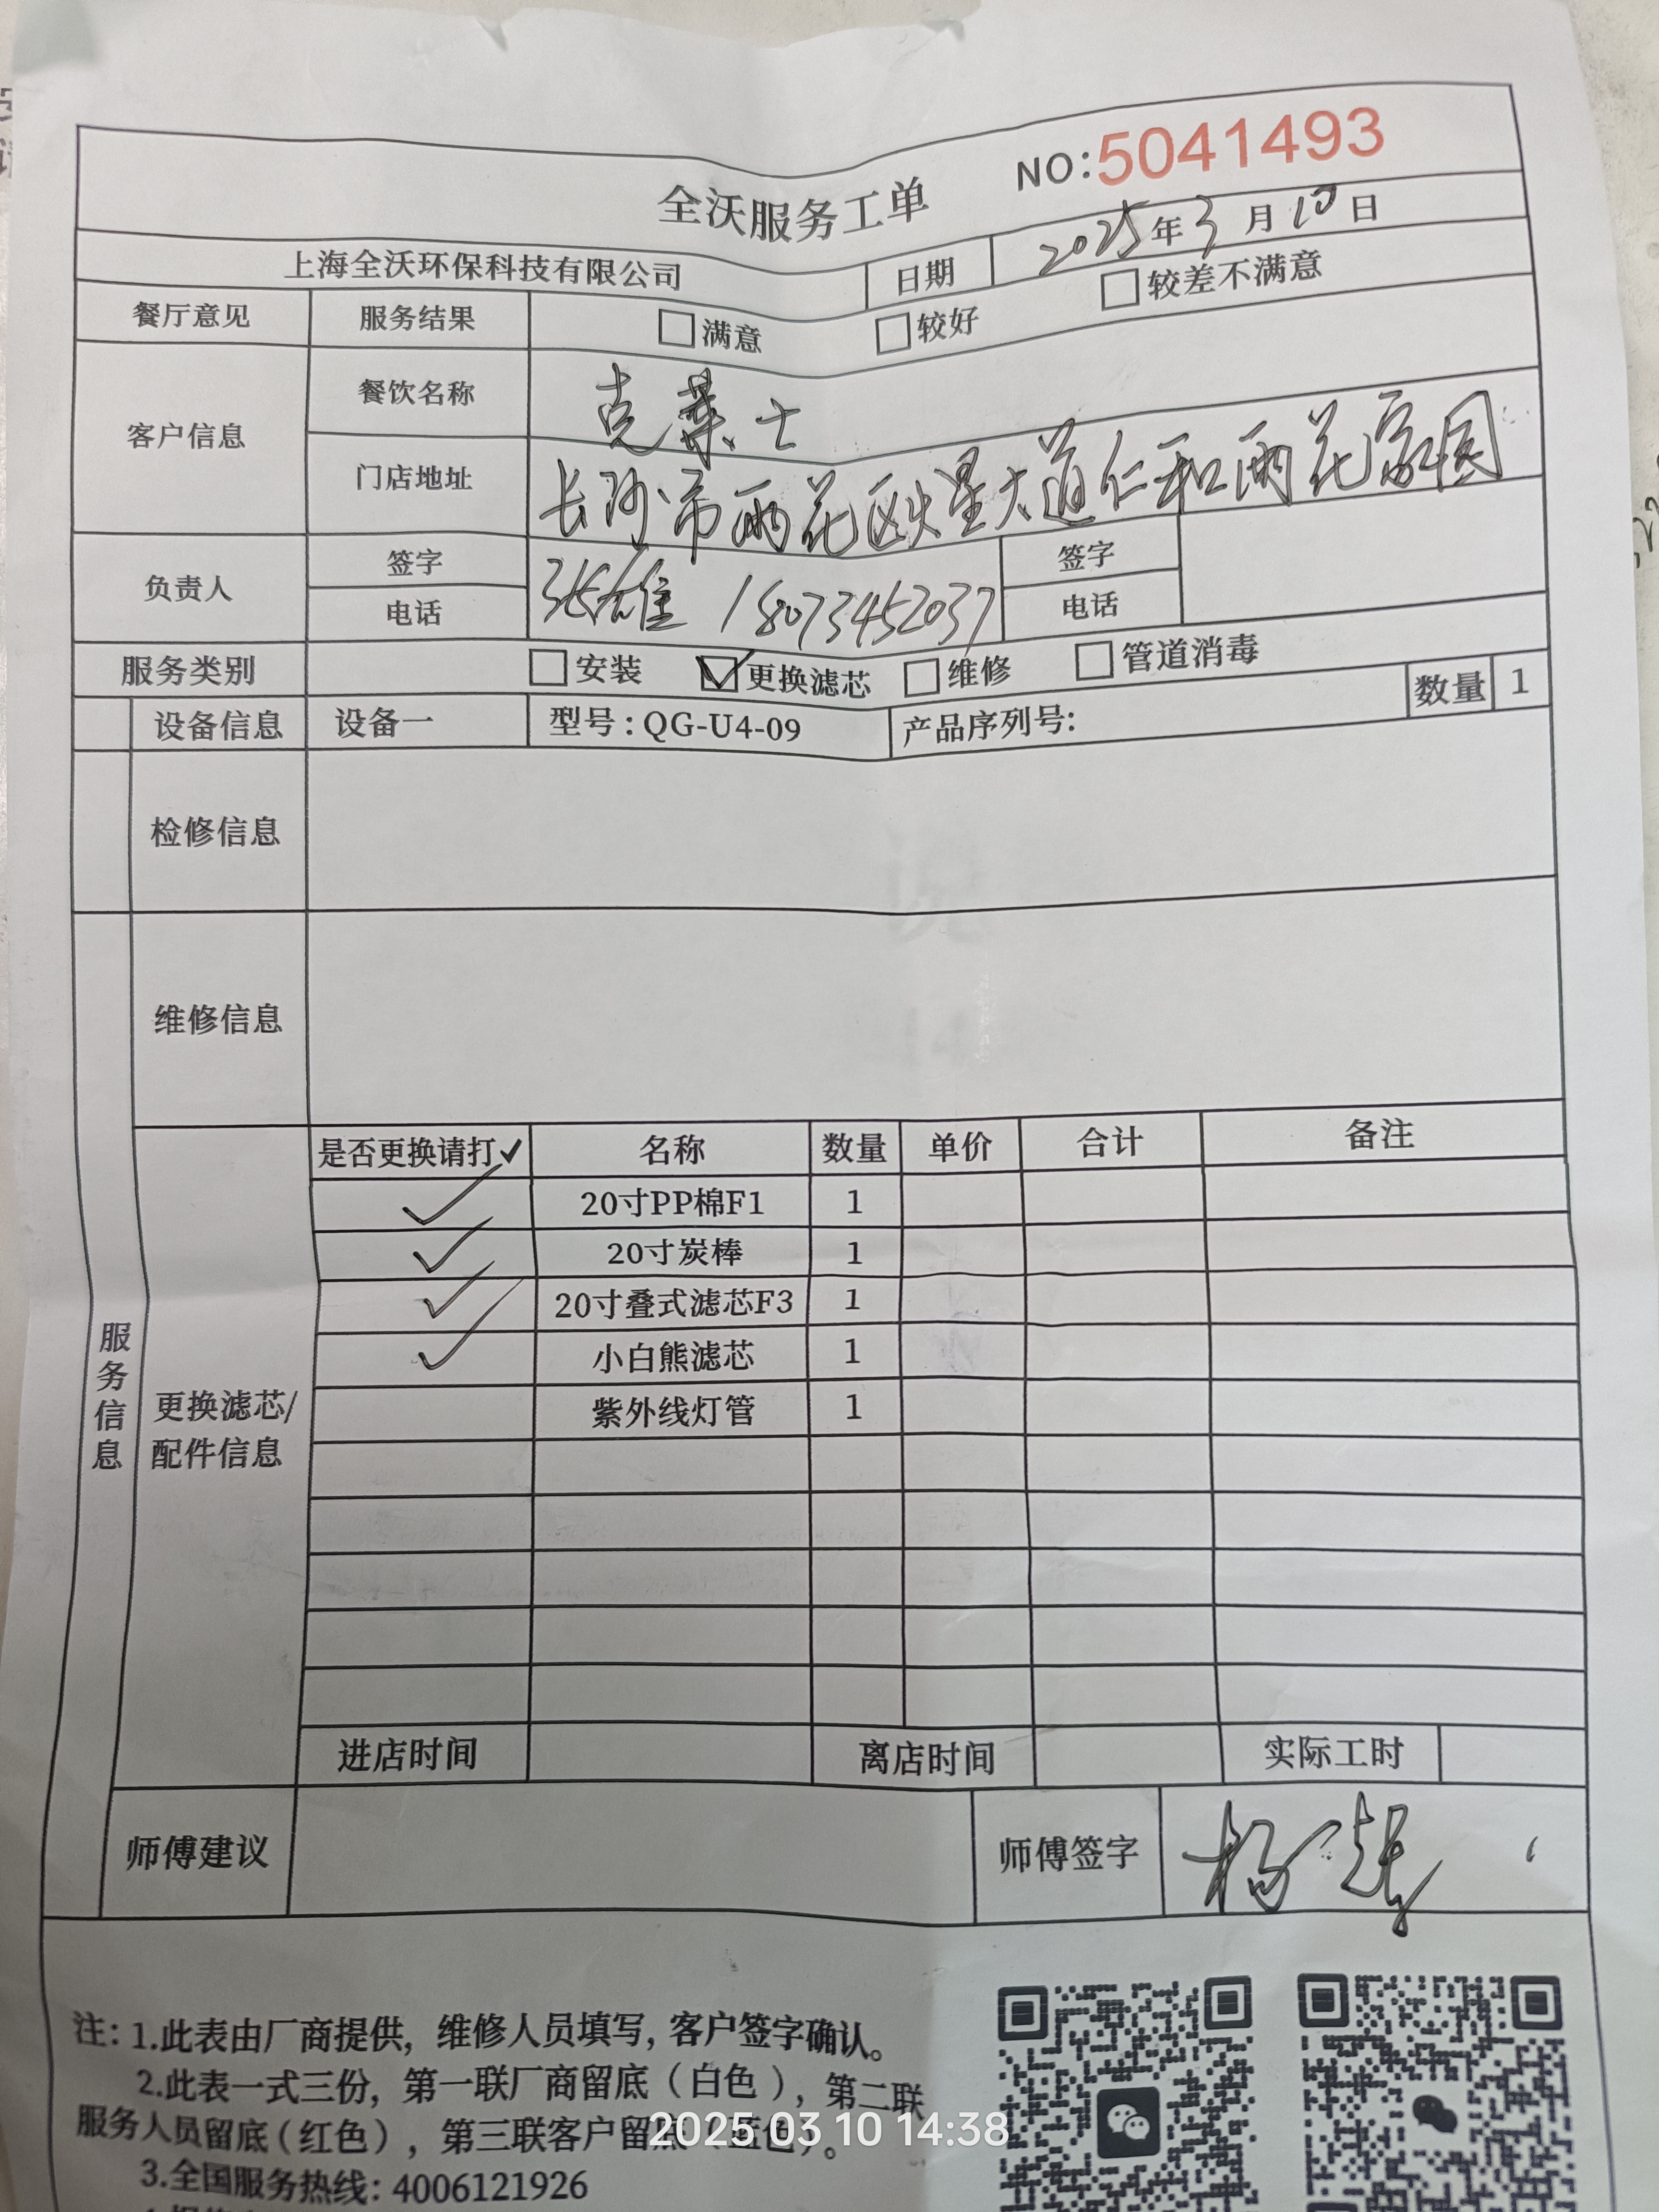 NO:5041493
全沃服务工单
上海全沃环保科技有限公司 日期 2025年3月10日
餐厅意见 服务结果 满意 较好 较差不满意
客户信息 餐饮名称 克莱士
门店地址 长沙市雨花区火星大道仁和雨花家园
负责人 签字 张雄 签字
电话 18073452037 电话
服务类别 安装 更换滤芯 维修 管道消毒
设备信息 设备一 型号:QG-U4-09 产品序列号: 数量 1
检修信息
维修信息
服务信息
更换滤芯/
配件信息
是否更换请打✓ 名称 数量 单价 合计 备注
✓ 20寸PP棉F1 1
✓ 20寸炭棒 1
✓ 20寸叠式滤芯F3 1
✓ 小白熊滤芯 1
紫外线灯管 1
进店时间 离店时间 实际工时
师傅建议 师傅签字 杨
注:1.此表由厂商提供,维修人员填写,客户签字确认。
2.此表一式三份,第一联厂商留底(白色),第二联
服务人员留底(红色),第三联客户留底(蓝色)。
2025 03 10 14:38
3.全国服务热线:4006121926